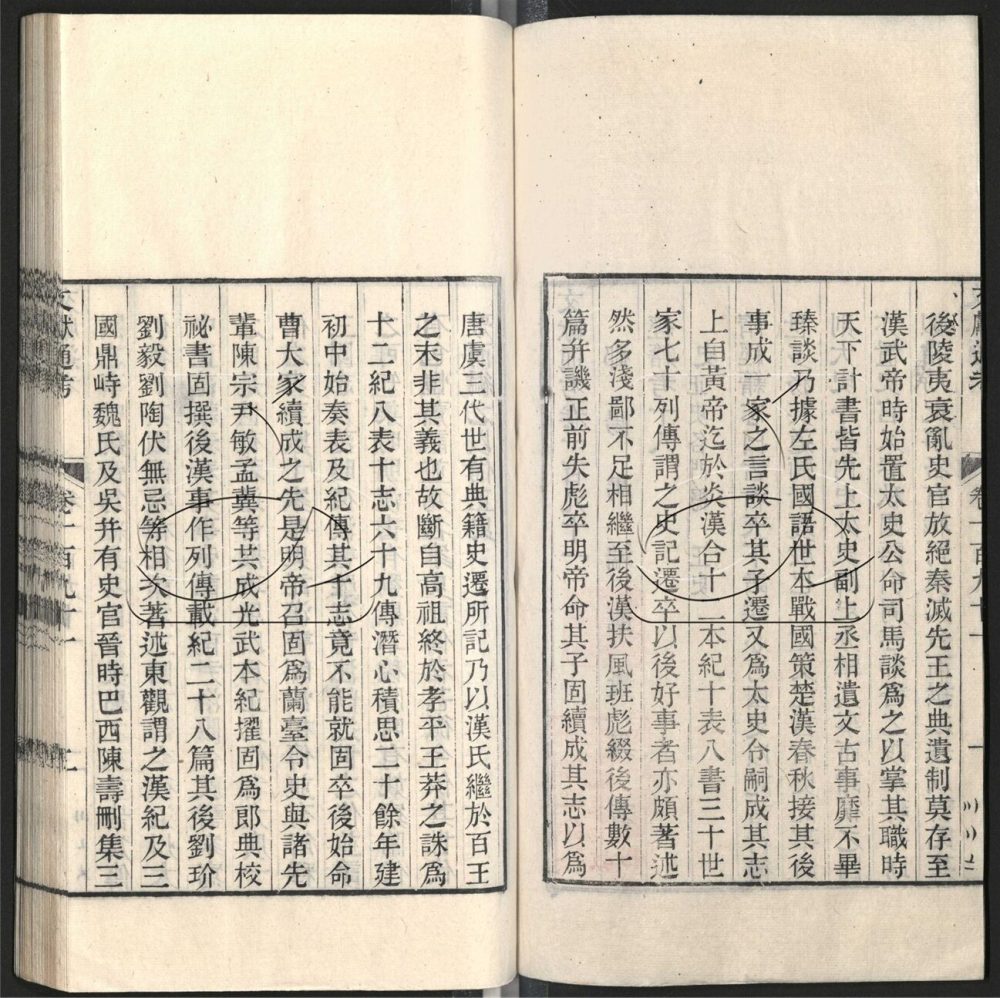 後陵夷衰亂史官放絕秦滅先王之典遺制莫存至
漢武帝時始置太史公命司馬談為之以掌其職時
天下計書皆先上太史副上丞相遺文古事靡不畢
臻談乃據左氏國語世本戰國策楚漢春秋接其後
事成一家之言談卒其子遷又為太史令嗣成其志
上自黃帝迄於炎漢合十二本紀十表八書三十世
家七十列傳謂之史記遷卒以後好事者亦頗著述
然多淺鄙不足相繼至後漢扶風班彪綴後傳數十
篇并譏正前失彪卒明帝命其子固續成其志以為
唐虞三代世有典籍史遷所記乃以漢氏繼於百王
之末非其義也故斷自高祖終於孝平王莽之誅為
十二紀八表十志六十九傳潛心積思二十餘年建
初中始奏表及紀傳其十志竟不能就固卒後始命
曹大家續成之先是明帝召固為蘭臺令史與諸先
輩陳宗尹敏孟冀等共成光武本紀擢固為郎典校
祕書固撰後漢事作列傳載紀二十八篇其後劉珍
劉毅劉陶伏無忌等相次著述東觀謂之漢紀及三
國鼎峙魏氏及吳并有史官晉時巴西陳壽刪集三
文獻通考 卷一百九十一